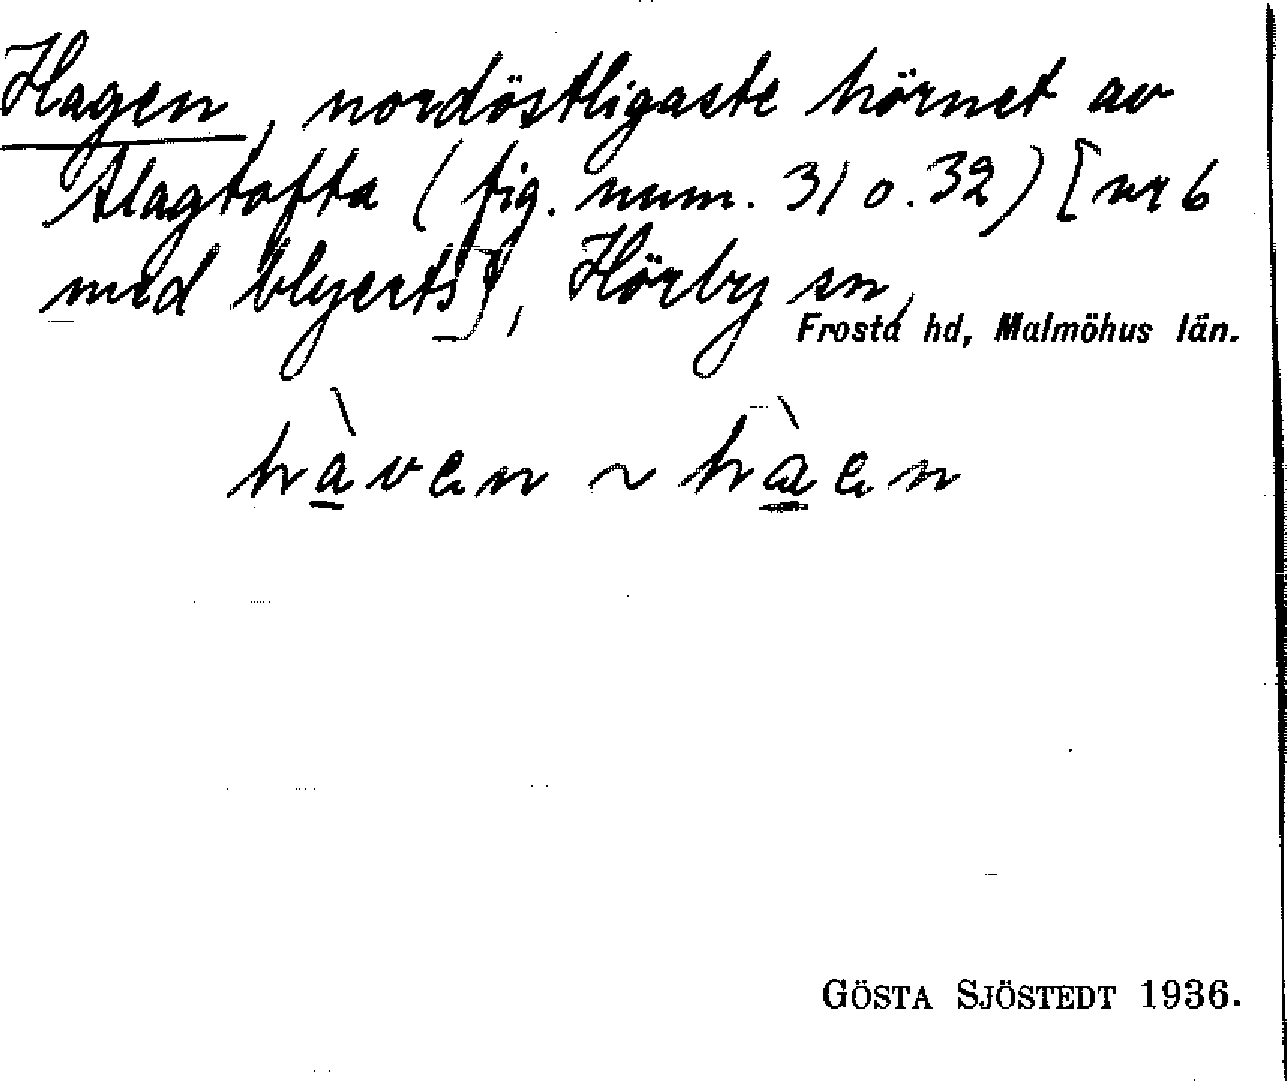 Hagen, nordöstligaste hörnet av
Slagtofta (fig. num. 31 o. 32) [nr 6
med blyerts], Hörby sn,
Frosta hd, Malmöhus län.
hàven ~ hàen
GÖSTA SJÖSTEDT 1936.